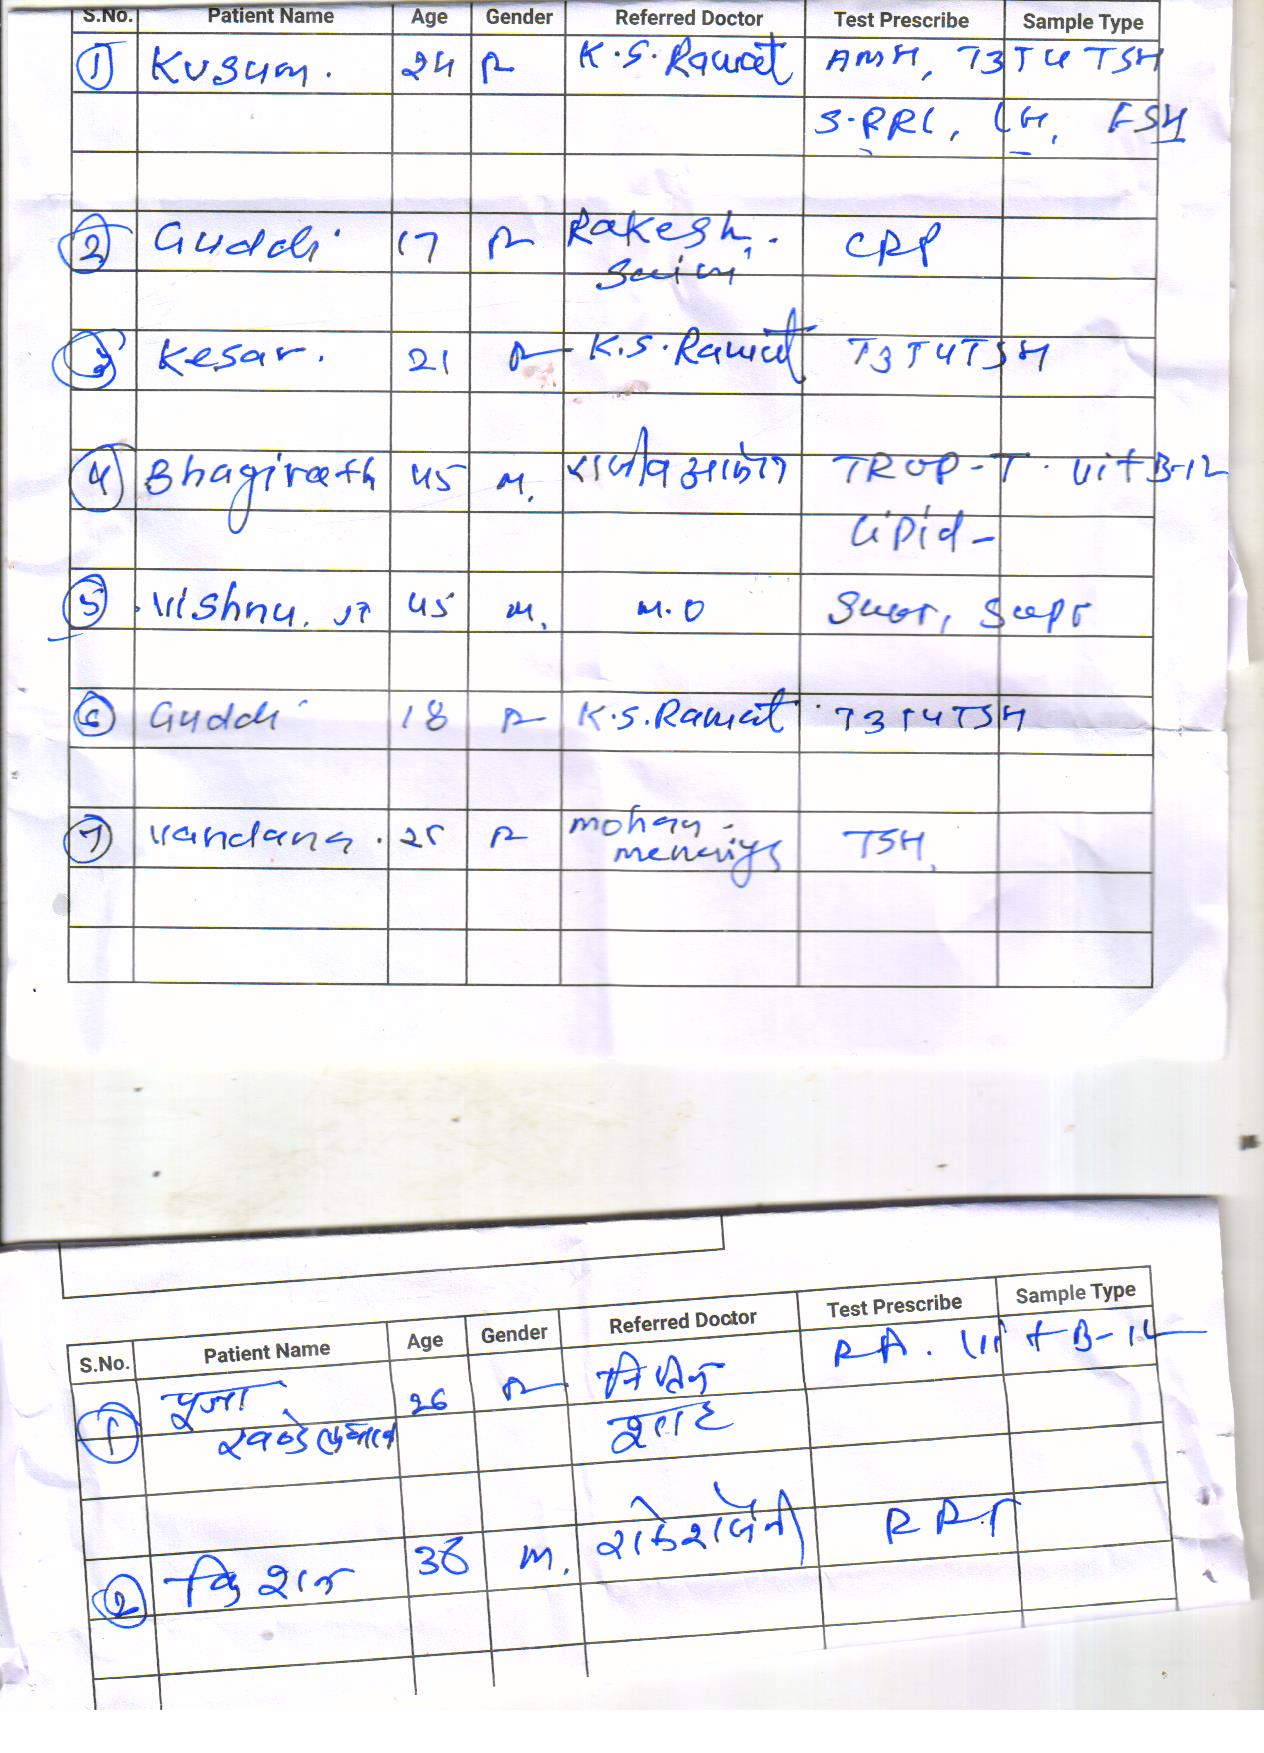 S.No. Patient Name Age Gender Referred Doctor Test Prescribe Sample Type
1 Kusum. 24 F K.S.Rawat AMH, T3T4TSH
S.PRL, LH, FSH
2 Guddi 17 F Rakesh. CRP
Saini
3 Kesar. 21 F K.S.Rawat T3T4TSH
4 Bhagirath 45 M. TROP-T. Vit B-12
Lipid-
5 Vishnu. 45 M. M.O SGOT, SGPT
6 Guddi 18 F K.S.Rawat T3T4TSH
7 Vandana. 25 F mohan TSH.
menariya
S.No. Patient Name Age Gender Referred Doctor Test Prescribe Sample Type
1 पूजा 26 F RA. Vit B-12
2 38 M.